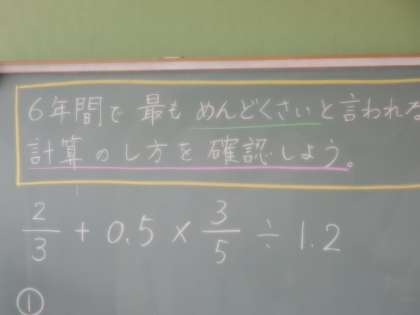 6年間で最もめんどくさいと言われる
計算のし方を確認しよう。
2/3 + 0.5 × 3/5 ÷ 1.2
①